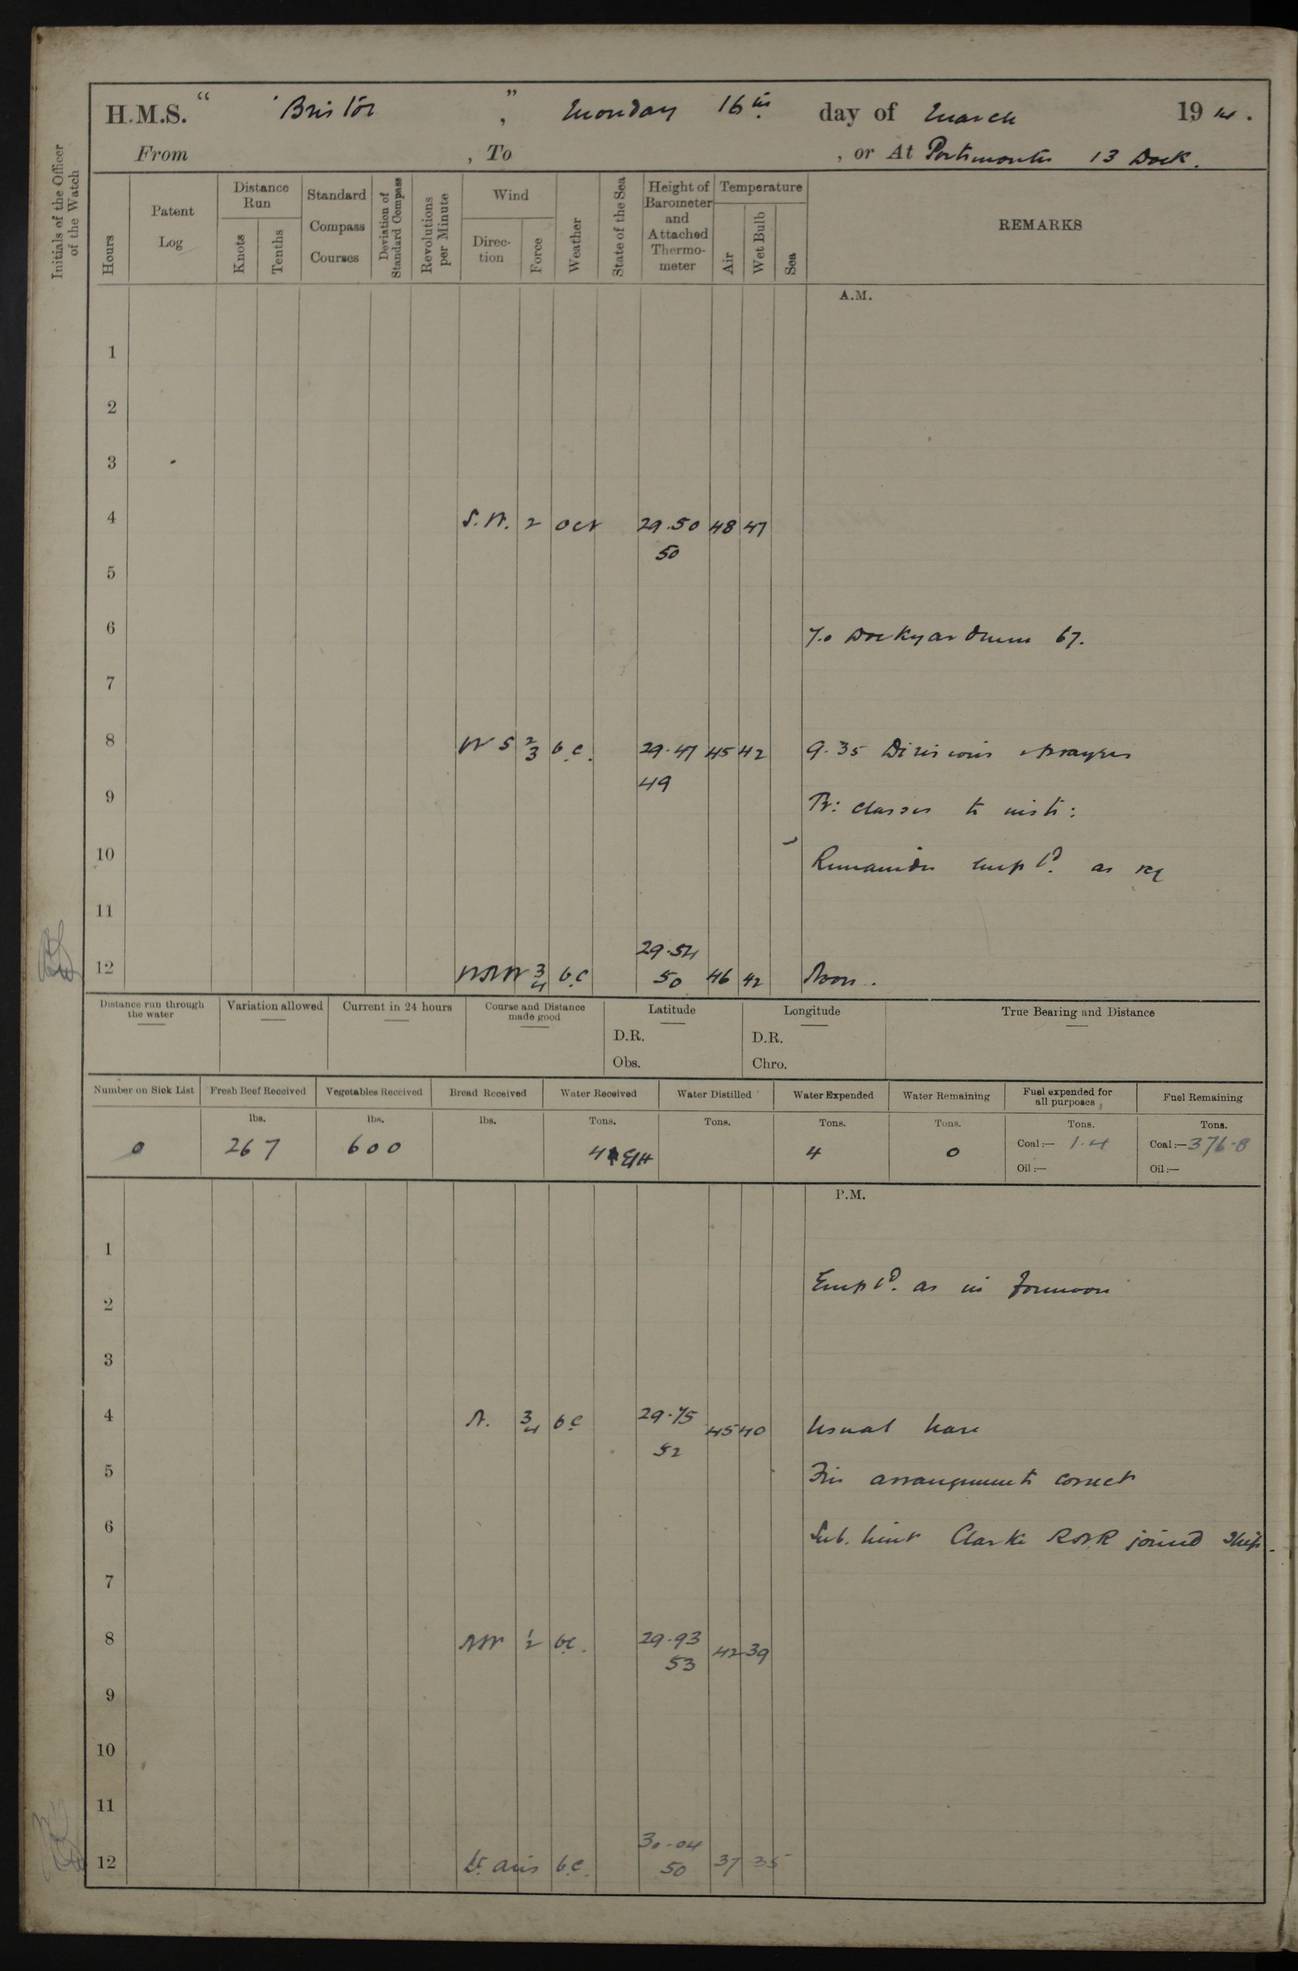 H.M.S. “ Bristol ”, Monday 16th day of March 1914.
From , To , or At Portsmouth 13 Dock.
Initials of the Officer of the Watch
Hours
Patent Log
Distance Run
Knots
Tenths
Standard Compass Courses
Deviation of Standard Compass
Revolutions per Minute
Wind
Direction
Force
Weather
State of the Sea
Height of Barometer and Attached Thermometer
Temperature
Air
Wet Bulb
Sea
REMARKS
A.M.
1
2
3
4 S.W. 2 ocr 29.50 48 47
50
5
6 7.0 Dockyard men 67.
7
8 W S 2/3 b.c. 29.47 45 42 9.35 Divisions & Prayers
49
9 classes to instr:
10 Remainder empld. as req
11
29.54
12 WNW 3/4 b.c 50 46 42 Noon.
Distance run through the water
Variation allowed
Current in 24 hours
Course and Distance made good
Latitude
D.R.
Obs.
Longitude
D.R.
Chro.
True Bearing and Distance
Number on Sick List
Fresh Beef Received
Vegetables Received
Bread Received
Water Received
Water Distilled
Water Expended
Water Remaining
Fuel expended for all purposes
Fuel Remaining
lbs. lbs. lbs. Tons. Tons. Tons. Tons. Tons. Tons.
0 267 600 4 4 0 Coal:— 1.4 Coal:—376.8
Oil:— Oil:—
P.M.
1
Empld. as in forenoon
2
3
4 N. 3/4 b.c 29.75 45 40 Usual leave
52
5 Fire arrangements correct
6 Sub. Lieut Clarke RNR joined ship.
7
8 NW 1/2 b.c. 29.93 42 39
53
9
10
11
30.04
12 Lt. airs b.c. 50 37 35